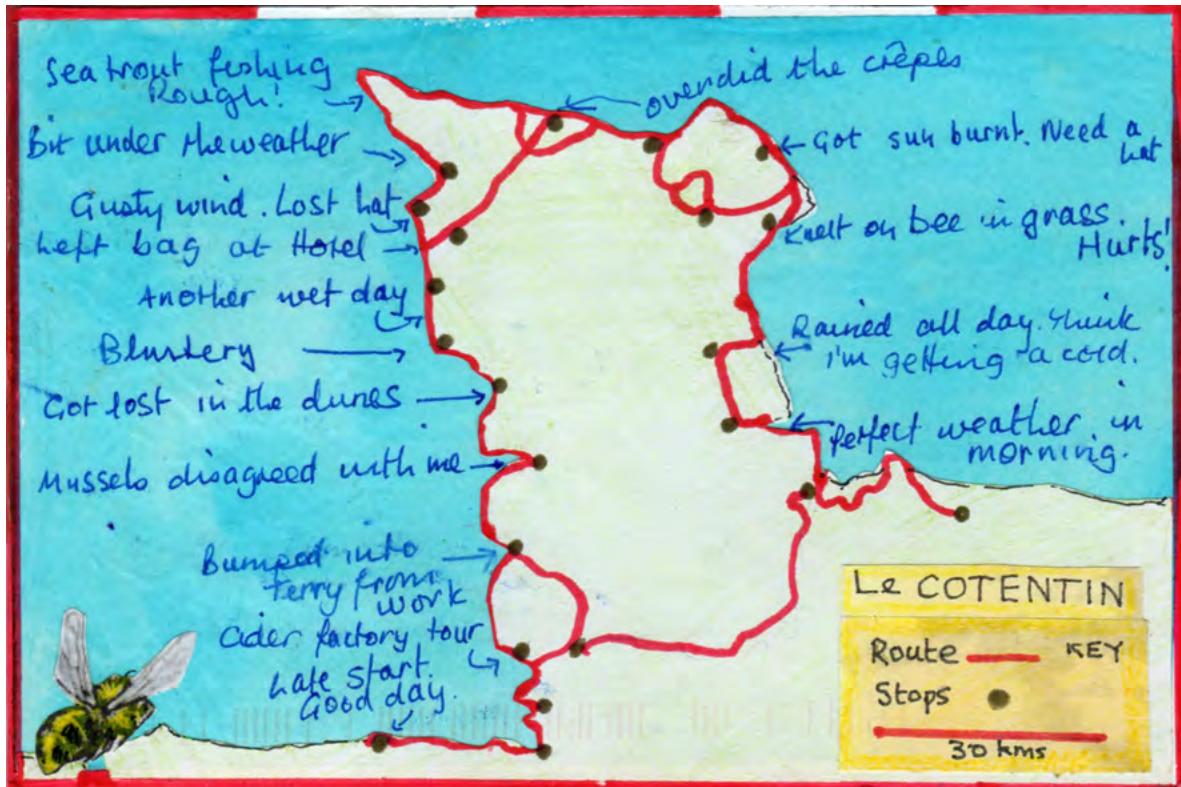 Sea trout fishing
Rough!
Bit under the weather
Gusty wind. Lost hat
Left bag at Hotel
Another wet day
Blustery
Got lost in the dunes
Mussels disagreed with me
Bumped into
Terry from
work
Cider factory tour
Late start.
Good day.
overdid the crêpes
Got sun burnt. Need a
hat
Knelt on bee in grass.
Hurts!
Rained all day. Think
I'm getting a cold.
Perfect weather in
morning.
Le COTENTIN
Route KEY
Stops
30 kms